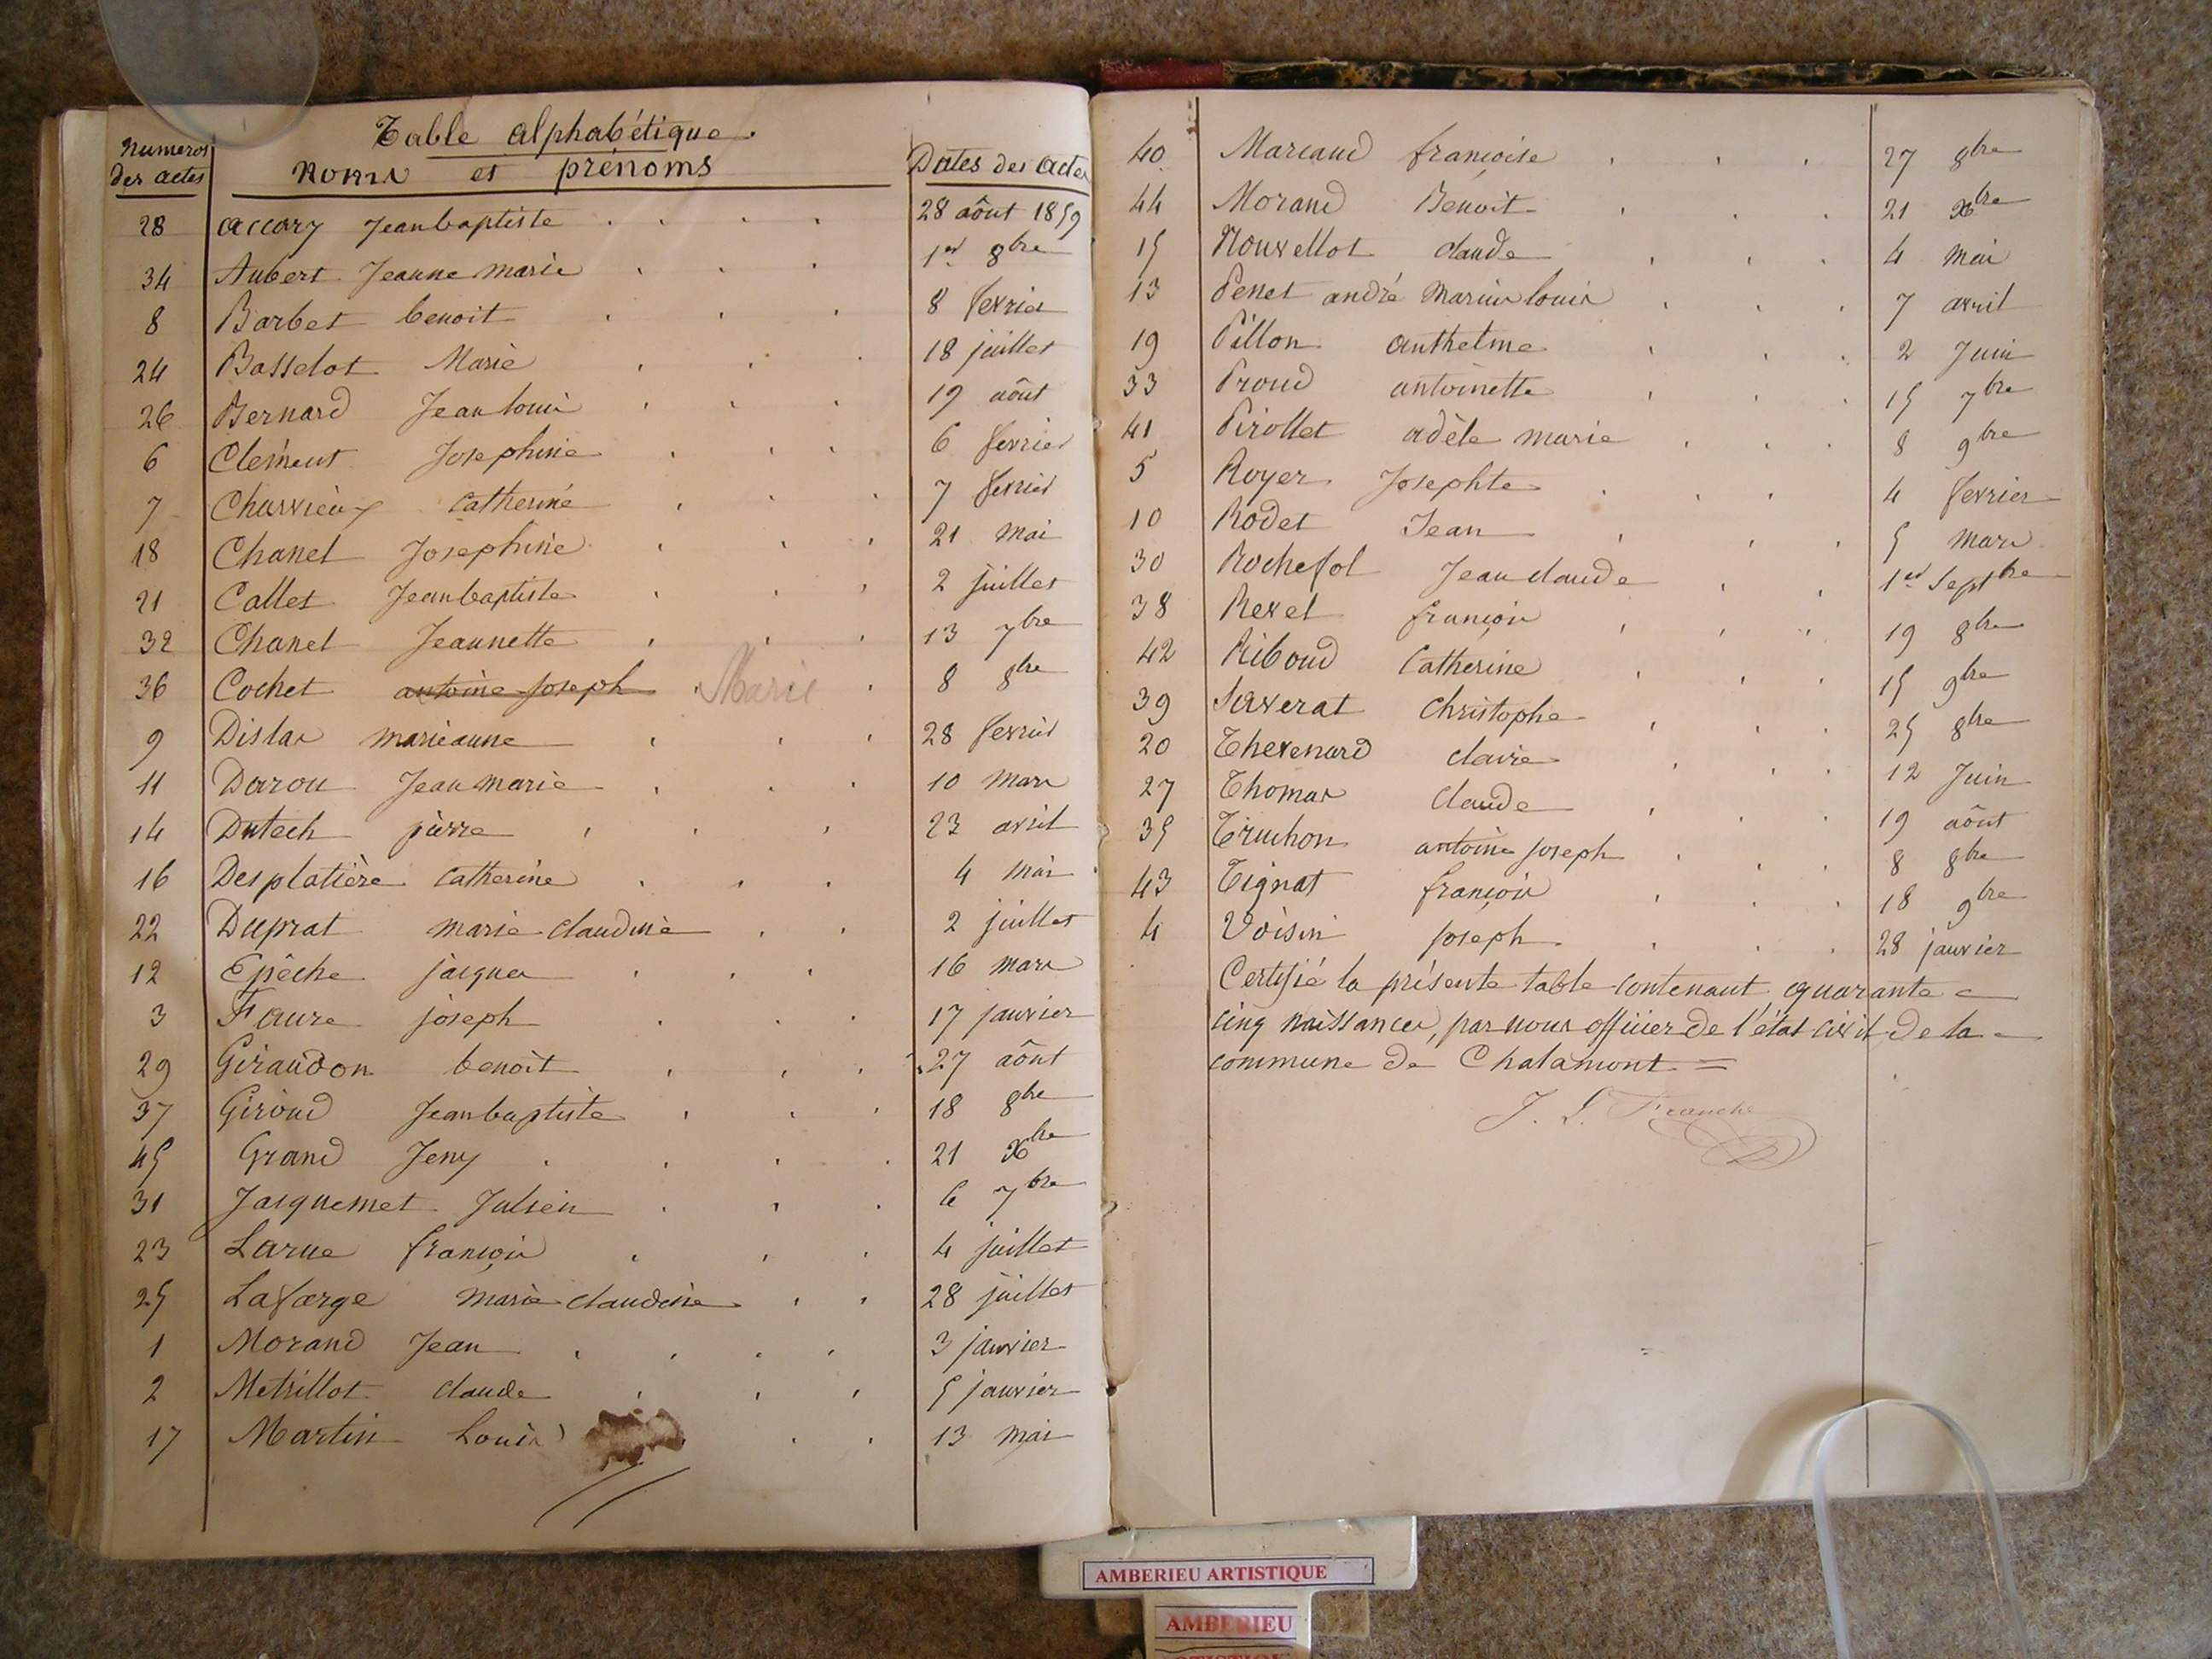 Table alphabétique.
Numeros des actes
Noms et prénoms
Dates des actes
28 accary Jean baptiste 28 aôut 1859
34 Aubert Jeanne marie 1er 8bre
8 Barbet benoit 8 fevrier
24 Basselot Marie 18 juillet
26 Bernard Jean louis 19 aôut
6 Clément Josephine 6 fevrier
7 Charvieux Catherine 7 fevrier
18 Chanel Josephine 21 mai
21 Collet Jean baptiste 2 juillet
32 Chanel Jeannette 13 7bre
36 Cochet antoine joseph Marie 8 8bre
9 Dislas marie anne 28 fevrier
11 Darou Jean marie 10 mars
14 Dutech pierre 23 avril
16 Desplatière Catherine 4 mai
22 Duprat marie claudine 2 juillet
12 Epêche jacques 16 mars
3 Faure joseph 17 janvier
29 Giraudon benoit 27 aôut
37 Giroud Jean baptiste 18 8bre
45 Grand Jeny 21 Xbre
31 Jacquemet Julien 6 7bre
23 Larue françois 4 juillet
25 Lafarge marie claudine 28 juillet
1 Morand Jean 3 janvier
2 Metrillot claude 5 janvier
17 Martin Louis 13 mai
40 Marcaud françoise 27 8bre
44 Morand Benoit 21 Xbre
15 Nouvellot claude 4 mai
13 Penet andré Marius louis 7 avril
19 Pillon anthelme 2 Juin
33 Proud antoinette 15 7bre
41 Pirollet adèle marie 8 9bre
5 Royer Josephte 4 fevrier
10 Rodet Jean 5 mars
30 Rochefol Jean claude 1er Septbre
38 Revel françois 19 8bre
42 Riboud Catherine 15 9bre
39 Saverat Christophe 25 8bre
20 Thevenard claire 12 Juin
27 Thomas claude 19 aôut
35 Truchon antoine joseph 8 8bre
43 Tignat françois 18 9bre
4 Voisin joseph 28 janvier
Certifié la présente table contenant quarante
cinq naissances, par nous officier de l'état civil de la
commune de Chalamont =
J. L. Franche
AMBERIEU ARTISTIQUE
AMBERIEU
ARTISTIQUE